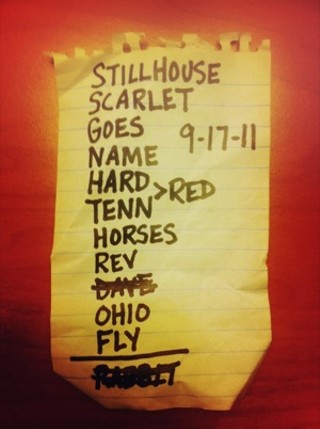 STILLHOUSE
SCARLET
GOES
9-17-11
NAME
HARD
>RED
TENN
HORSES
REV
DAVE
OHIO
FLY
RABBIT